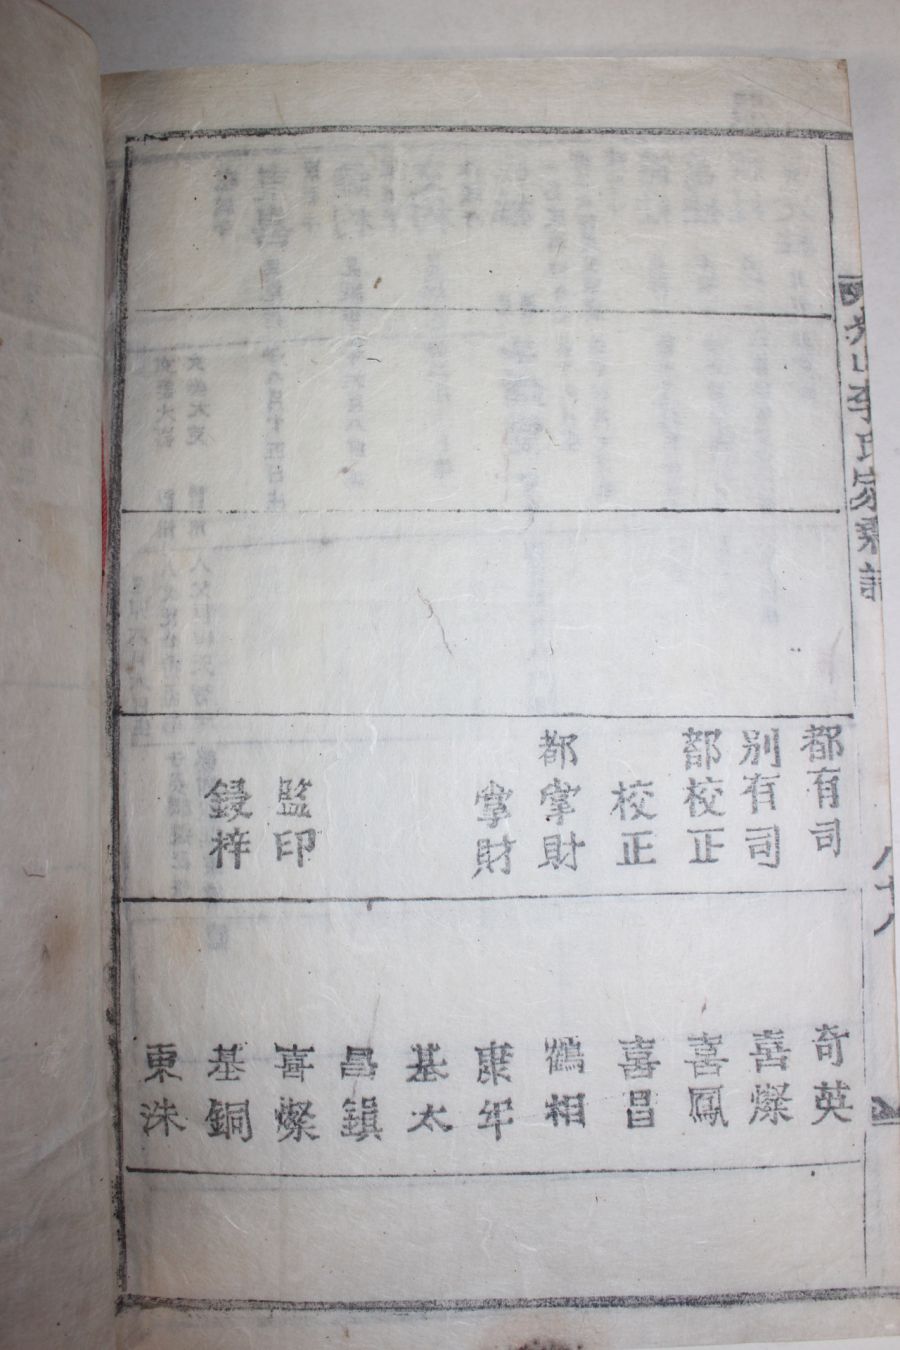 光山李氏家乘譜
八十八
都有司 奇英
別有司 喜燦
都校正 喜鳳
校正 喜昌
都掌財 鶴相
掌財 秉年
基太
昌鎮
監印 喜燦
鋟梓 基銅
東洙